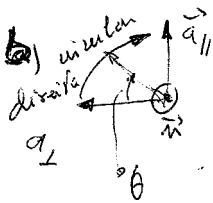 b) circular
direita
a⃗∥
n⃗
a⊥
θ